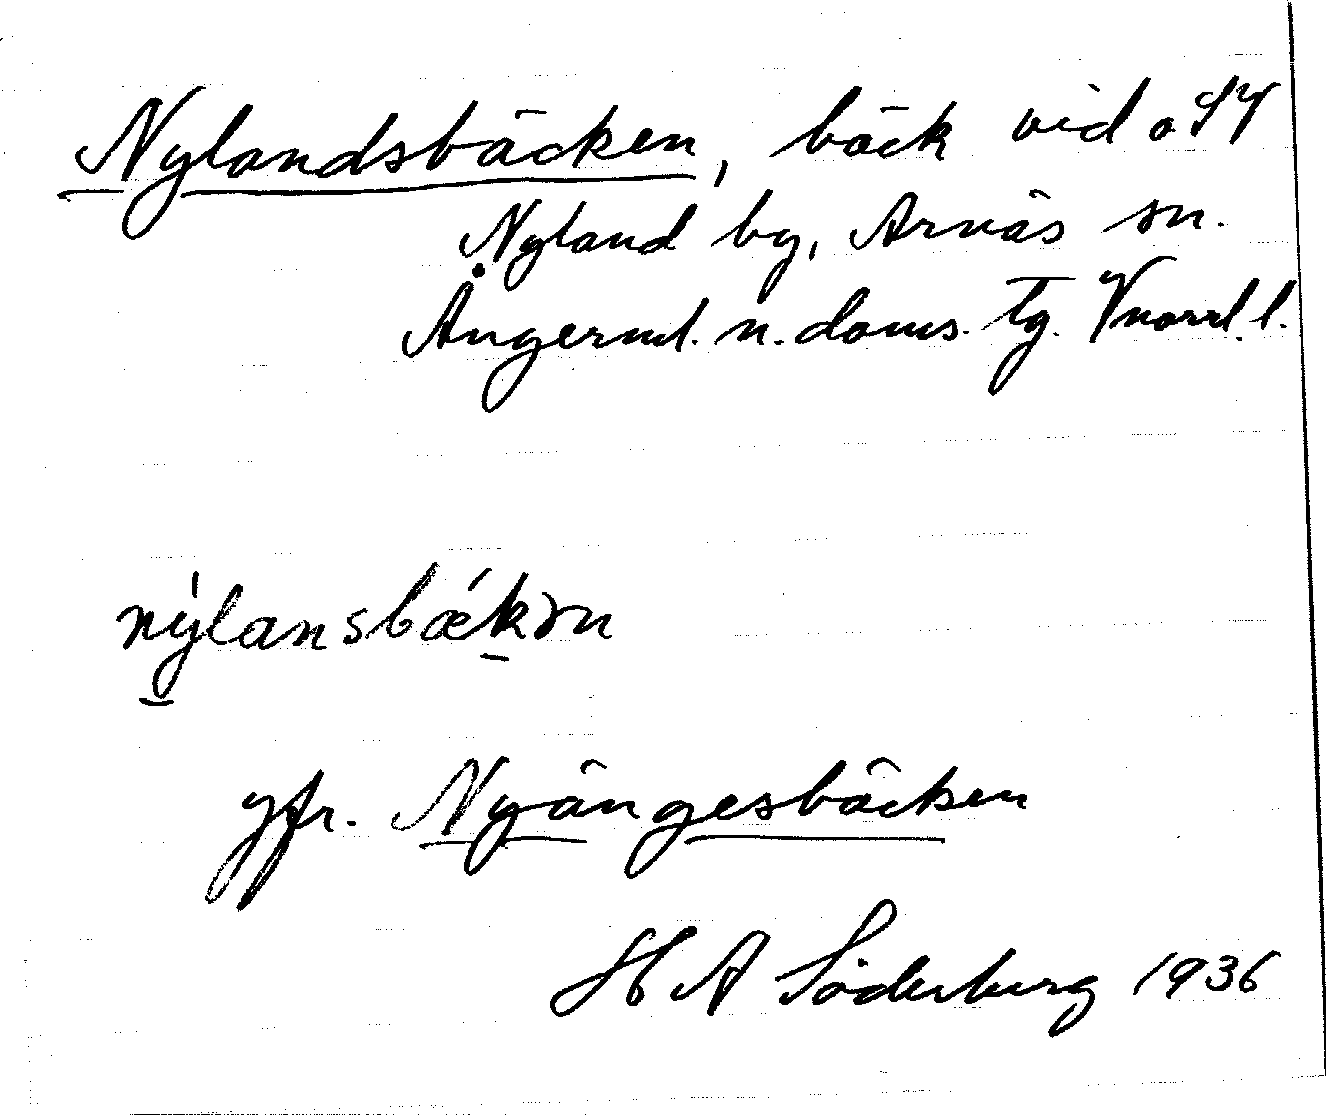 Nylandsbäcken, bäck vid o SV
Nyland by, Arnäs sn.
Ångerml. n. doms. tg. Vnorrl. l.
nýlansbǽkən
jfr. Nyängesbäcken
H A Söderburg 1936